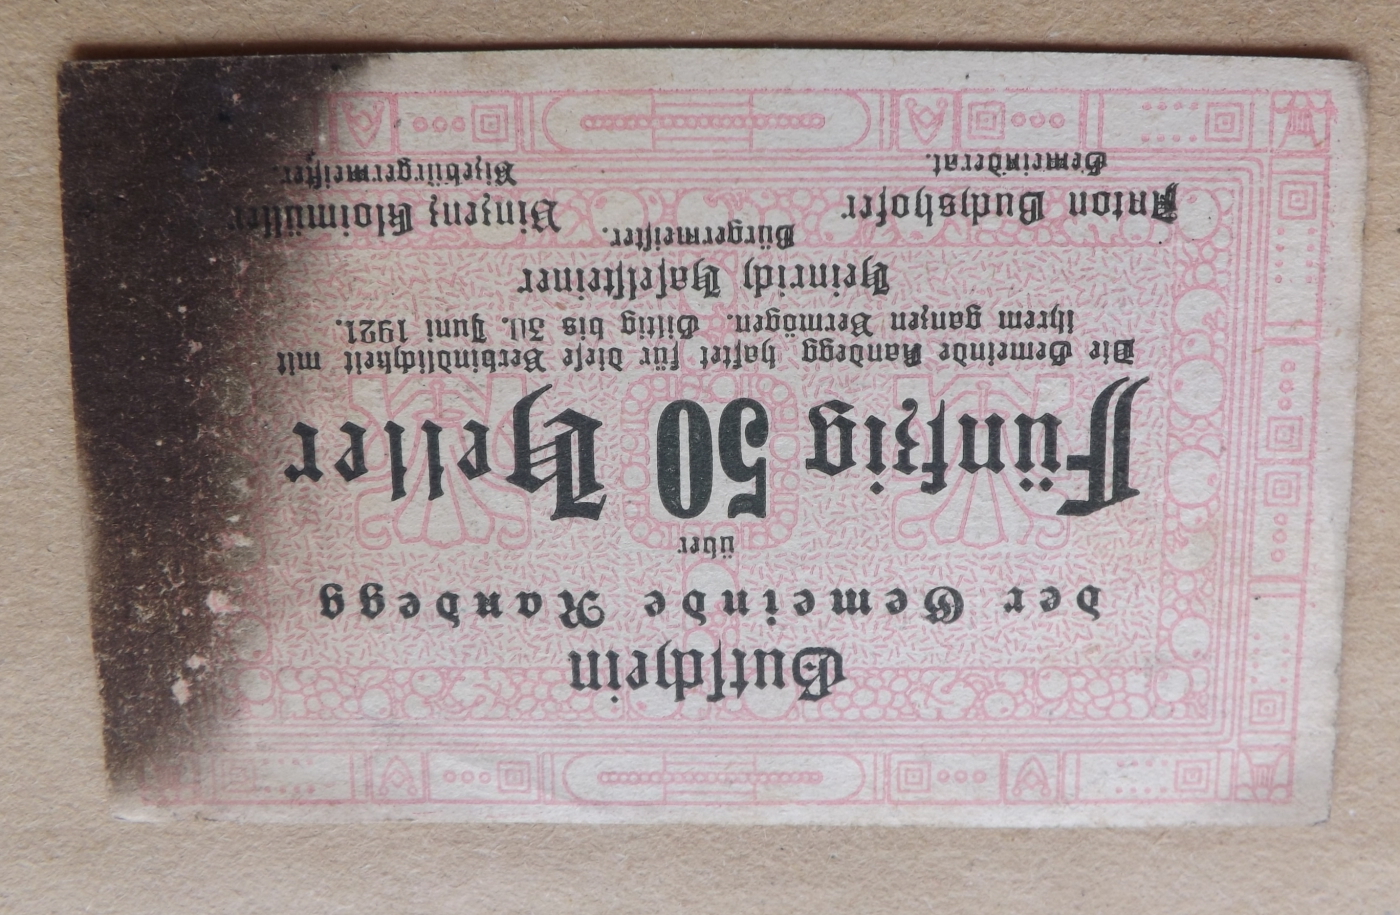 Gutschein
der Gemeinde Randegg
über
Fünfzig 50 Heller
Die Gemeinde Randegg haftet für diese Verbindlichkeit mit
ihrem ganzen Vermögen. Giltig bis 30. Juni 1921.
Heinrich Haselsteiner
Bürgermeister.
Anton Buchshofer
Gemeinderat.
Vinzenz Kloimüller
Vizebürgermeister.